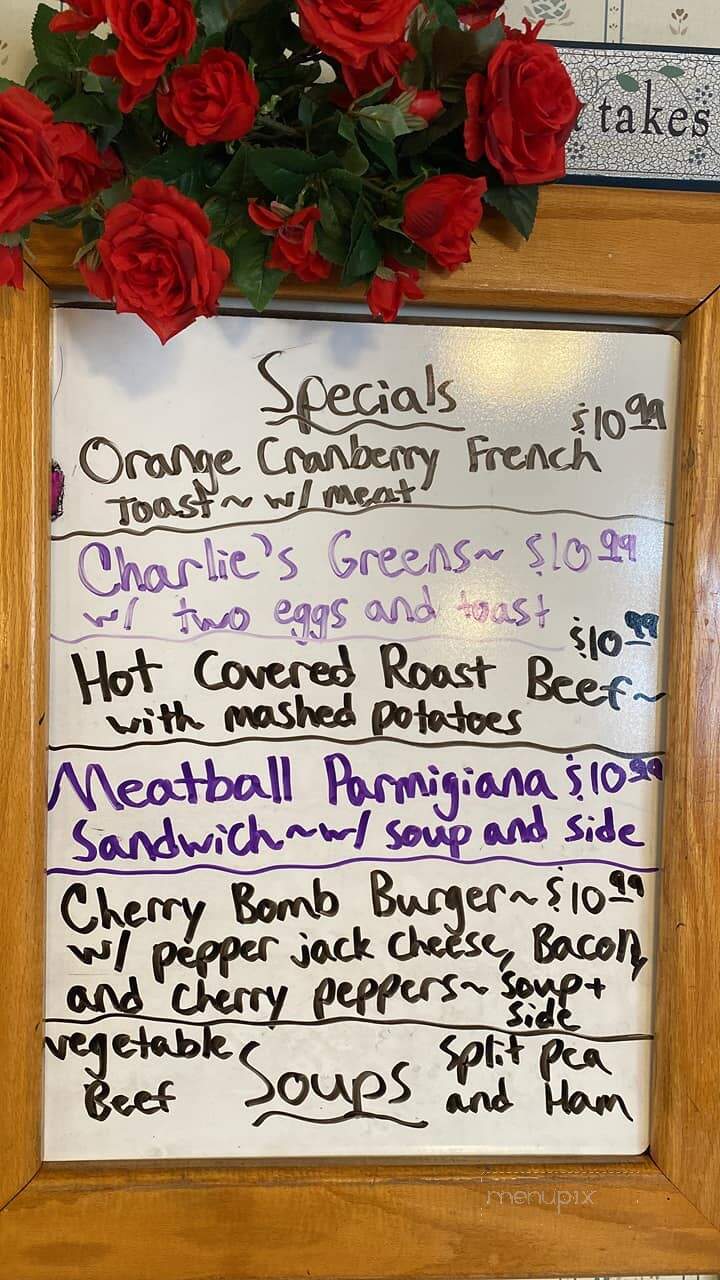 takes
Specials
$10.99
Orange Cranberry French
Toast~ w/ meat
Charlie's Greens~ $10.99
w/ two eggs and toast
$10.99
Hot Covered Roast Beef~
with mashed potatoes
Meatball Parmigiana $10.99
Sandwich~w/ soup and side
Cherry Bomb Burger~ $10.99
w/ pepper jack cheese, Bacon,
and cherry peppers~ soup+
side
vegetable
Beef
Soups
Split pea
and Ham
menupix